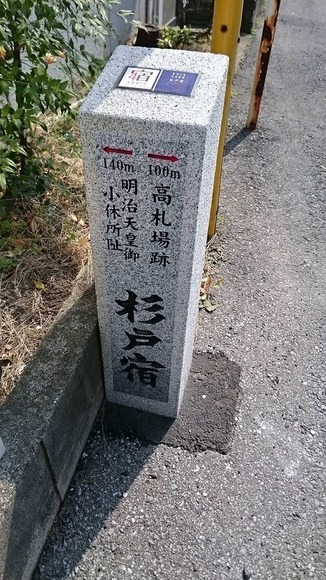 宿
100m
高札場跡
140m
明治天皇御
小休所趾
杉戸宿